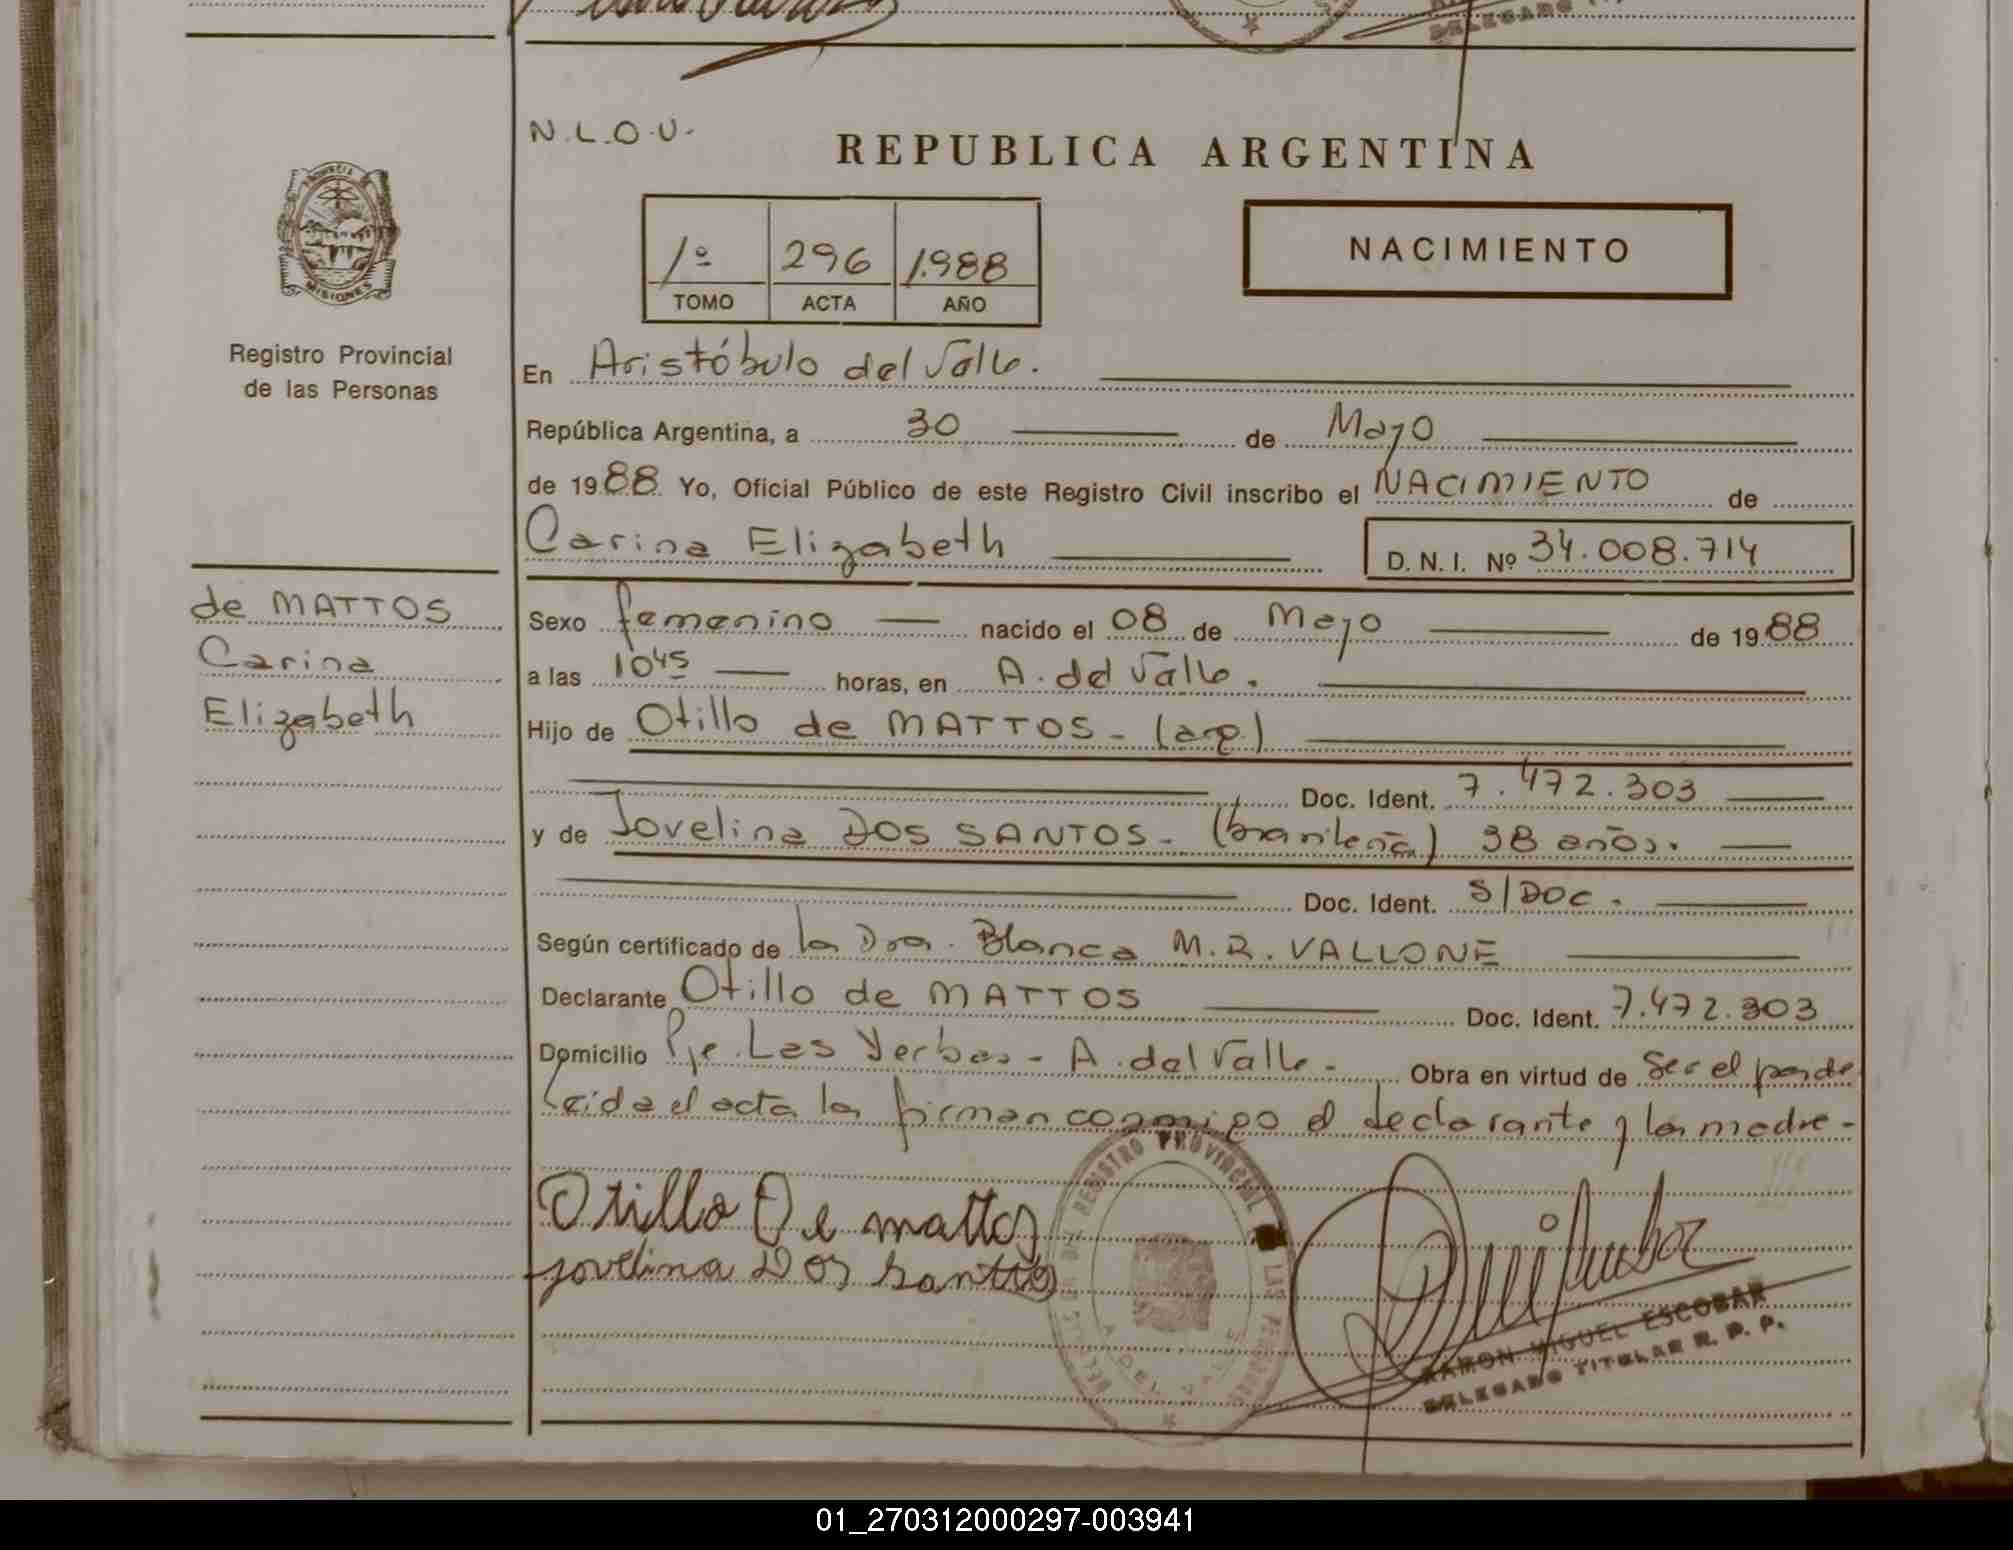 DELEGADO
N.L.O.U.
REPUBLICA ARGENTINA
PROVINCIA DE
MISIONES
1º 296 1.988
TOMO ACTA AÑO
NACIMIENTO
Registro Provincial
de las Personas
En Aristóbulo del Valle.
República Argentina, a 30 de Mayo
de 1988 Yo, Oficial Público de este Registro Civil inscribo el NACIMIENTO de
Carina Elizabeth
D. N. I. Nº 34.008.714
de MATTOS
Carina
Elizabeth
Sexo femenino nacido el 08 de Mayo de 1988
a las 10 45 horas, en A. del Valle.
Hijo de Otillo de MATTOS - (arg.)
Doc. Ident. 7.472.303
y de Jovelina DOS SANTOS - (brasileña) 38 años.
Doc. Ident. S/DOC.
Según certificado de la Dra. Blanca M.R. VALLONE
Declarante Otillo de MATTOS Doc. Ident. 7.472.303
Domicilio Pje. Las Yerbas - A. del Valle - Obra en virtud de ser el padre
Leida el acta la firman conmigo el declarante y la madre -
Otillo De mattos
jovelina Dos Santos
REGISTRO PROVINCIAL DE LAS PERSONAS
A. DEL VALLE
RAMON MIGUEL ESCOBAR
DELEGADO TITULAR R. P. P.
01_270312000297-003941